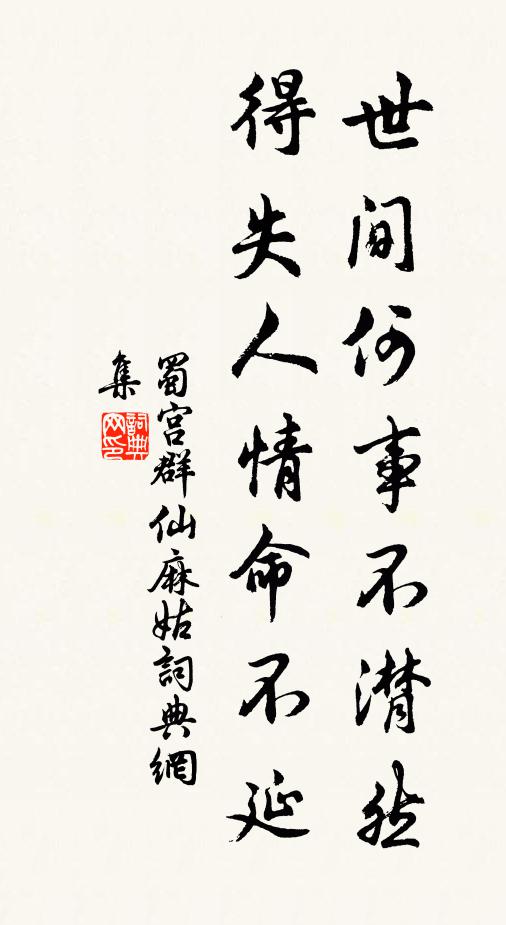 世間何事不潸然
得失人情命不延
蜀宮群仙麻姑詞典網
集
詞典网印